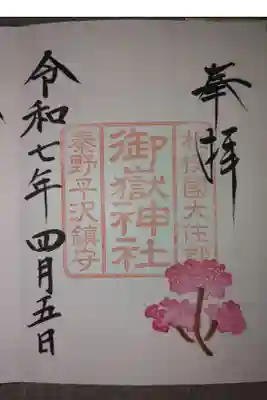 奉拝
相模國大住郡
御嶽神社
秦野平沢鎮守
令和七年 四月五日